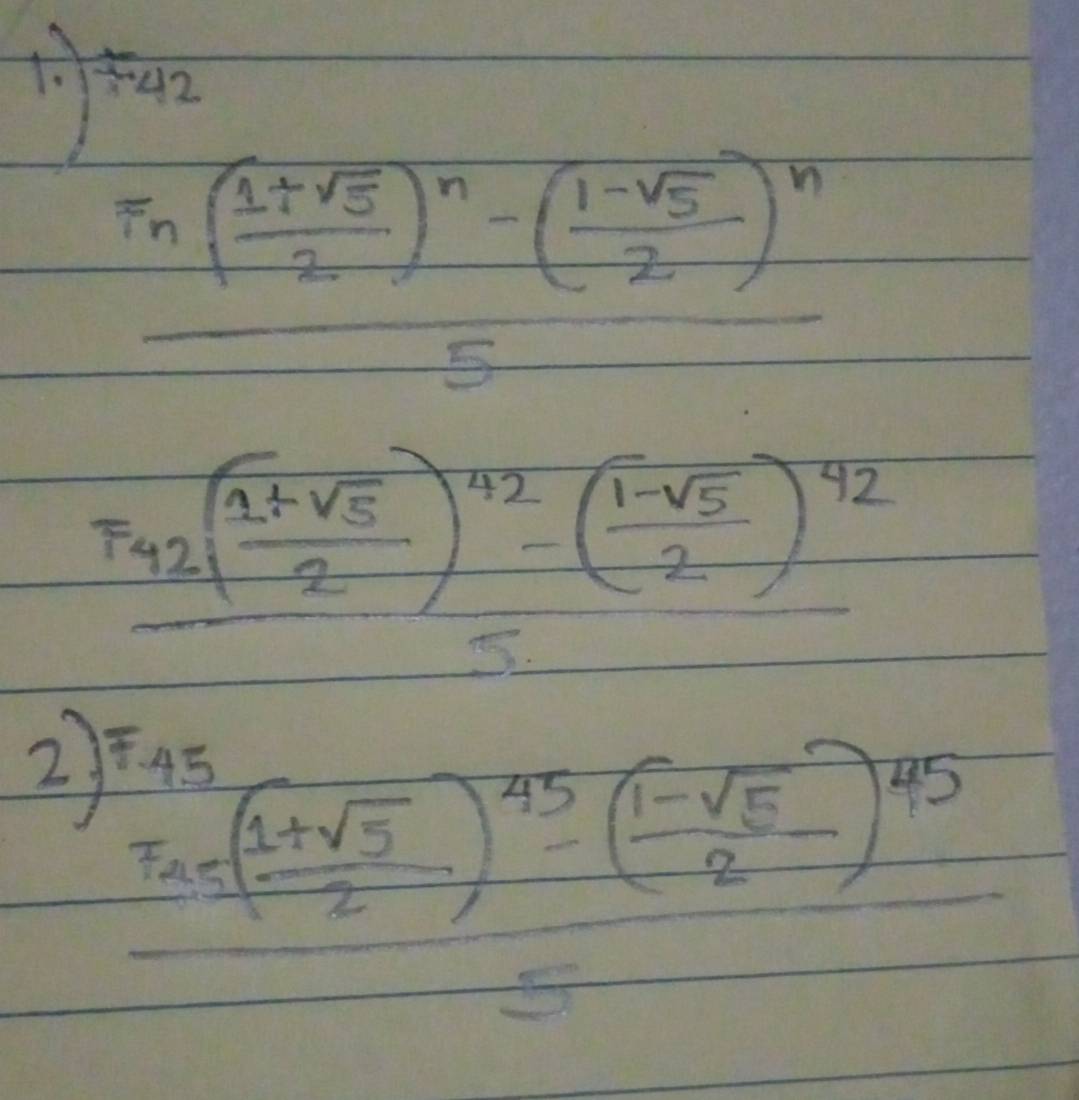 1.) F42
Fn (1+√5/2)^n - (1-√5/2)^n
5
F42 (1+√5/2)^42 - (1-√5/2)^42
5
2.) F45
F45 (1+√5/2)^45 - (1-√5/2)^45
5